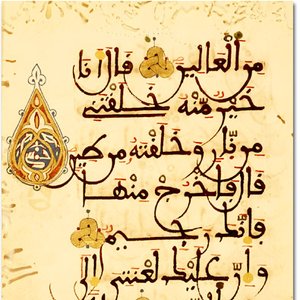 مِنَ الْعَالِينَ قَالَ أَنَا
خَيْرٌ مِنْهُ خَلَقْتَنِي
مِنْ نَارٍ وَخَلَقْتَهُ مِنْ طِينٍ
قَالَ فَاخْرُجْ مِنْهَا
فَإِنَّكَ رَجِيمٌ
وَإِنَّ عَلَيْكَ لَعْنَتِي إِلَى